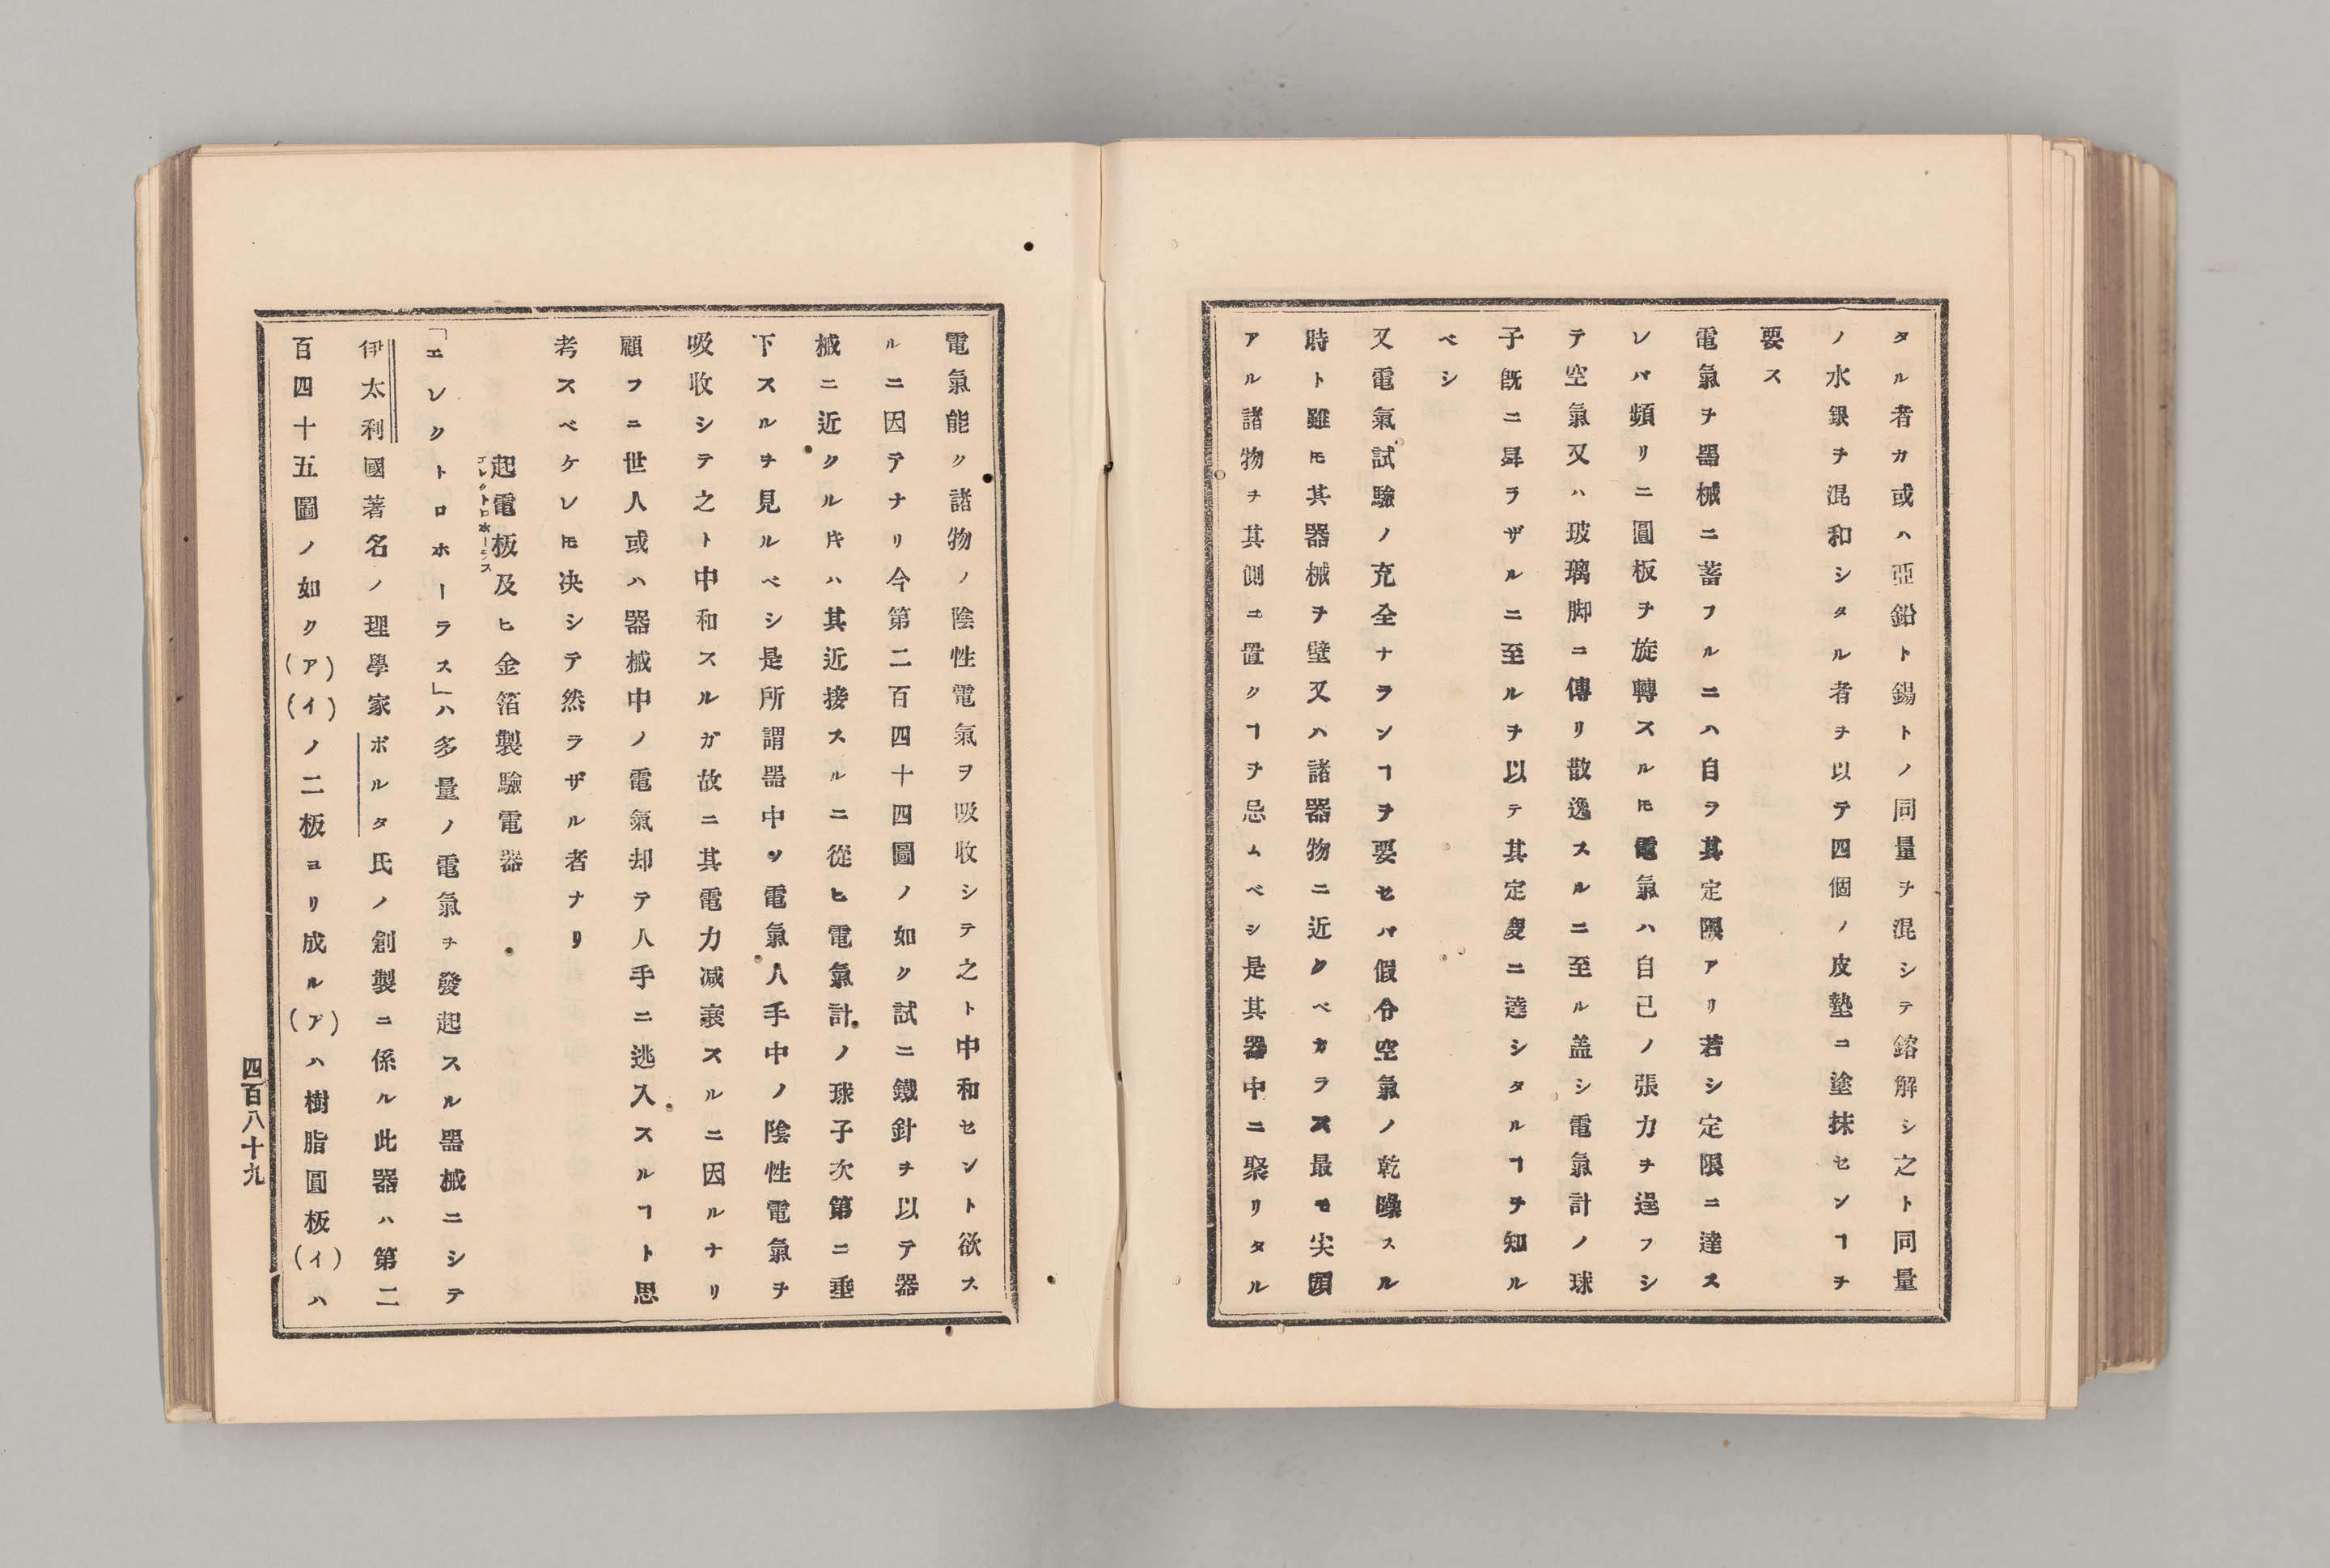 タル者カ或ハ亞鉛ト錫トノ同量ヲ混シテ鎔解シ之ト同量
ノ水銀ヲ混和シタル者ヲ以テ四個ノ皮墊ニ塗抹センヿヲ
要ス
電氣ヲ器械ニ蓄フルニハ自ラ其定限アリ若シ定限ニ達ス
レバ頻リニ圓板ヲ旋轉スルㇳモ電氣ハ自己ノ張力ヲ逞フシ
テ空氣又ハ玻璃脚ニ傳リ散逸スルニ至ル盖シ電氣計ノ球
子既ニ昇ラザルニ至ルヲ以テ其定度ニ達シタルヿヲ知ル
ベシ
又電氣試驗ノ充全ナランヿヲ要セバ假令空氣ノ乾燥スル
時ト雖モ其器械ヲ壁又ハ諸器物ニ近クベカラス最モ尖頭
アル諸物ヲ其側ニ置クヿヲ忌ムベシ是其器中ニ聚リタル
電氣能ク諸物ノ陰性電氣ヲ吸收シテ之ト中和セント欲ス
ルニ因テナリ今第二百四十四圖ノ如ク試ニ鐵針ヲ以テ器
械ニ近クルㇳキハ其近接スルニ從ヒ電氣計ノ球子次第ニ垂
下スルヲ見ルベシ是所謂器中ノ電氣人手中ノ陰性電氣ヲ
吸收シテ之ト中和スルガ故ニ其電力減衰スルニ因ルナリ
顧フニ世人或ハ器械中ノ電氣却テ人手ニ逃入スルヿト思
考スベケレㇳモ决シテ然ラザル者ナリ
起電板及ヒ金箔製驗電器
エレクトロホーラス
「エレクトロホーラス」ハ多量ノ電氣ヲ發起スル器械ニシテ
伊太利國著名ノ理學家ボルタ氏ノ創製ニ係ル此器ハ第二
百四十五圖ノ如ク(ア)(イ)ノ二板ヨリ成ル(ア)ハ樹脂圓板(イ)ハ
四百八十九